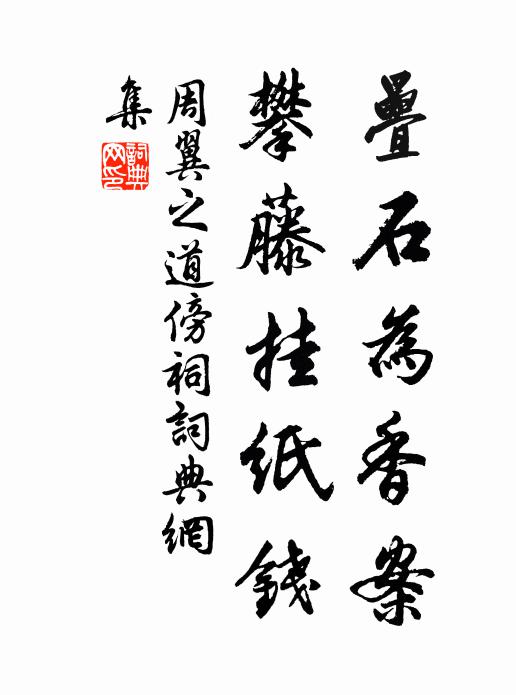 疊石為香案
攀藤挂紙錢
周翼之道傍祠詞典網
集
詞典
网印